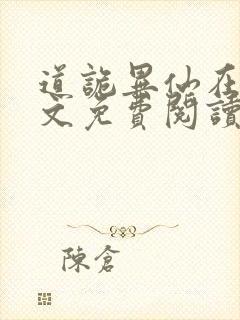 道詭異仙在
文免費閱讀
陳倉